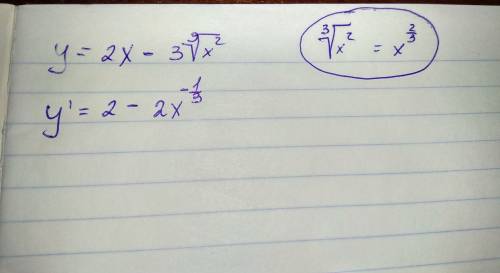 y = 2x - 3∛x²
∛x² = x^(2/3)
y' = 2 - 2x^(-1/3)